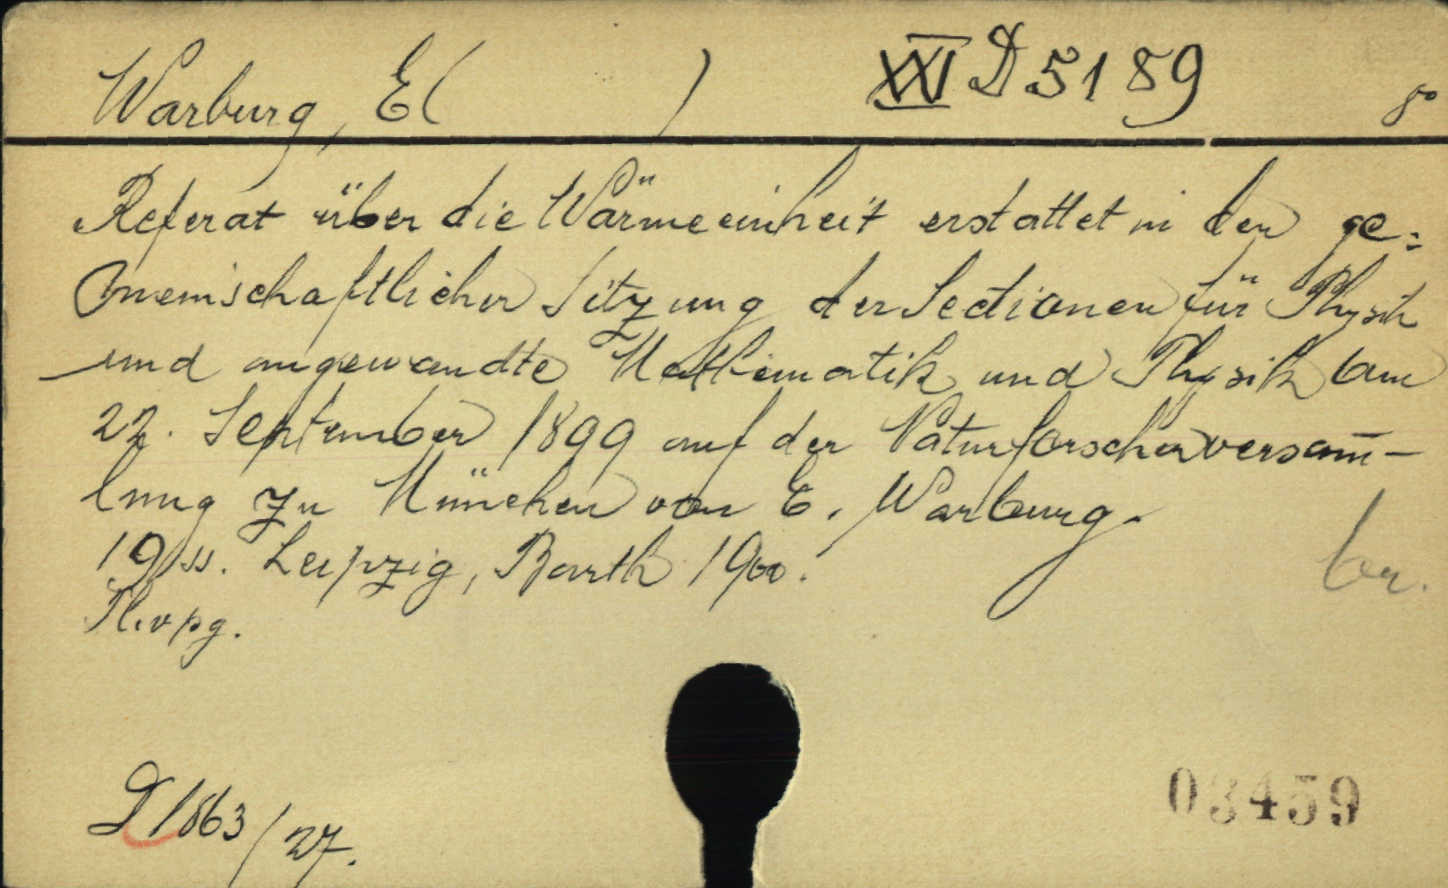 Warburg, E( ) XXI D 5189 8°
Referat über die Wärmeeinheit erstattet in der ge=
meinschaftlicher Sitzung der Sectionen für Physik
und angewandte Mathematik und Physik am
22. September 1899 auf der Naturforscherversam̅-
lung zu München von E. Warburg.
19 ss. Leipzig, Barth 1900. br.
D 1863/27.
03459